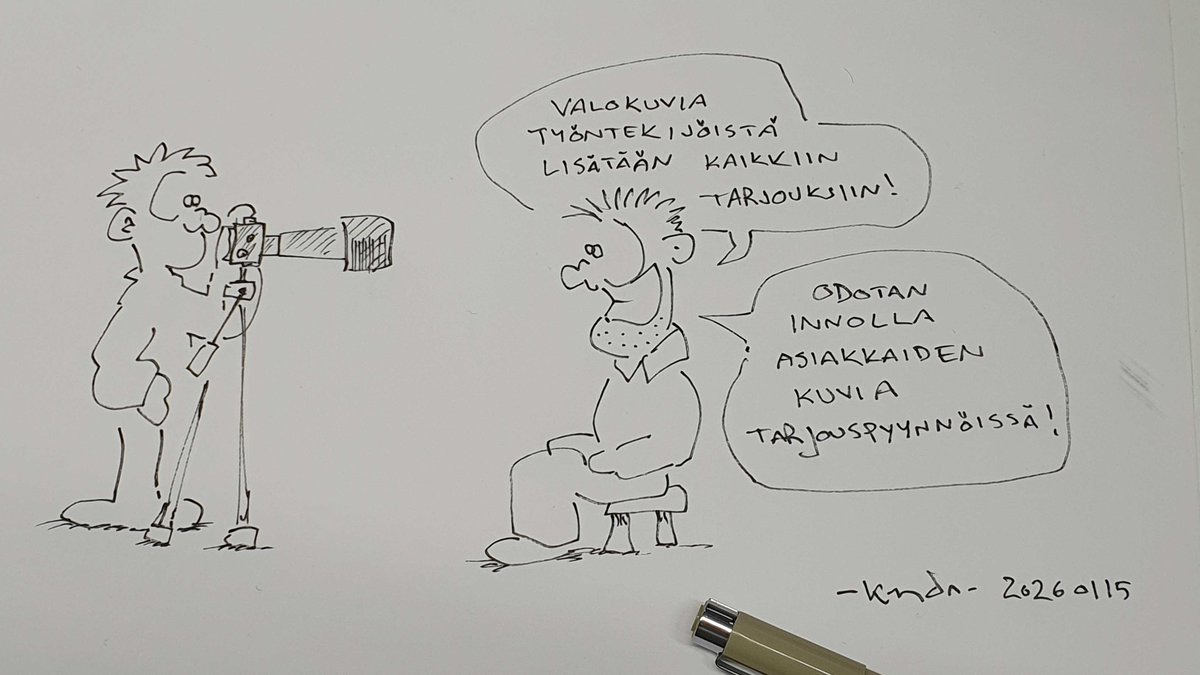 VALOKUVIA
TYÖNTEKIJÖISTÄ
LISÄTÄÄN KAIKKIIN
TARJOUKSIIN!
ODOTAN
INNOLLA
ASIAKKAIDEN
KUVIA
TARJOUSPYYNNÖISSÄ!
20260115